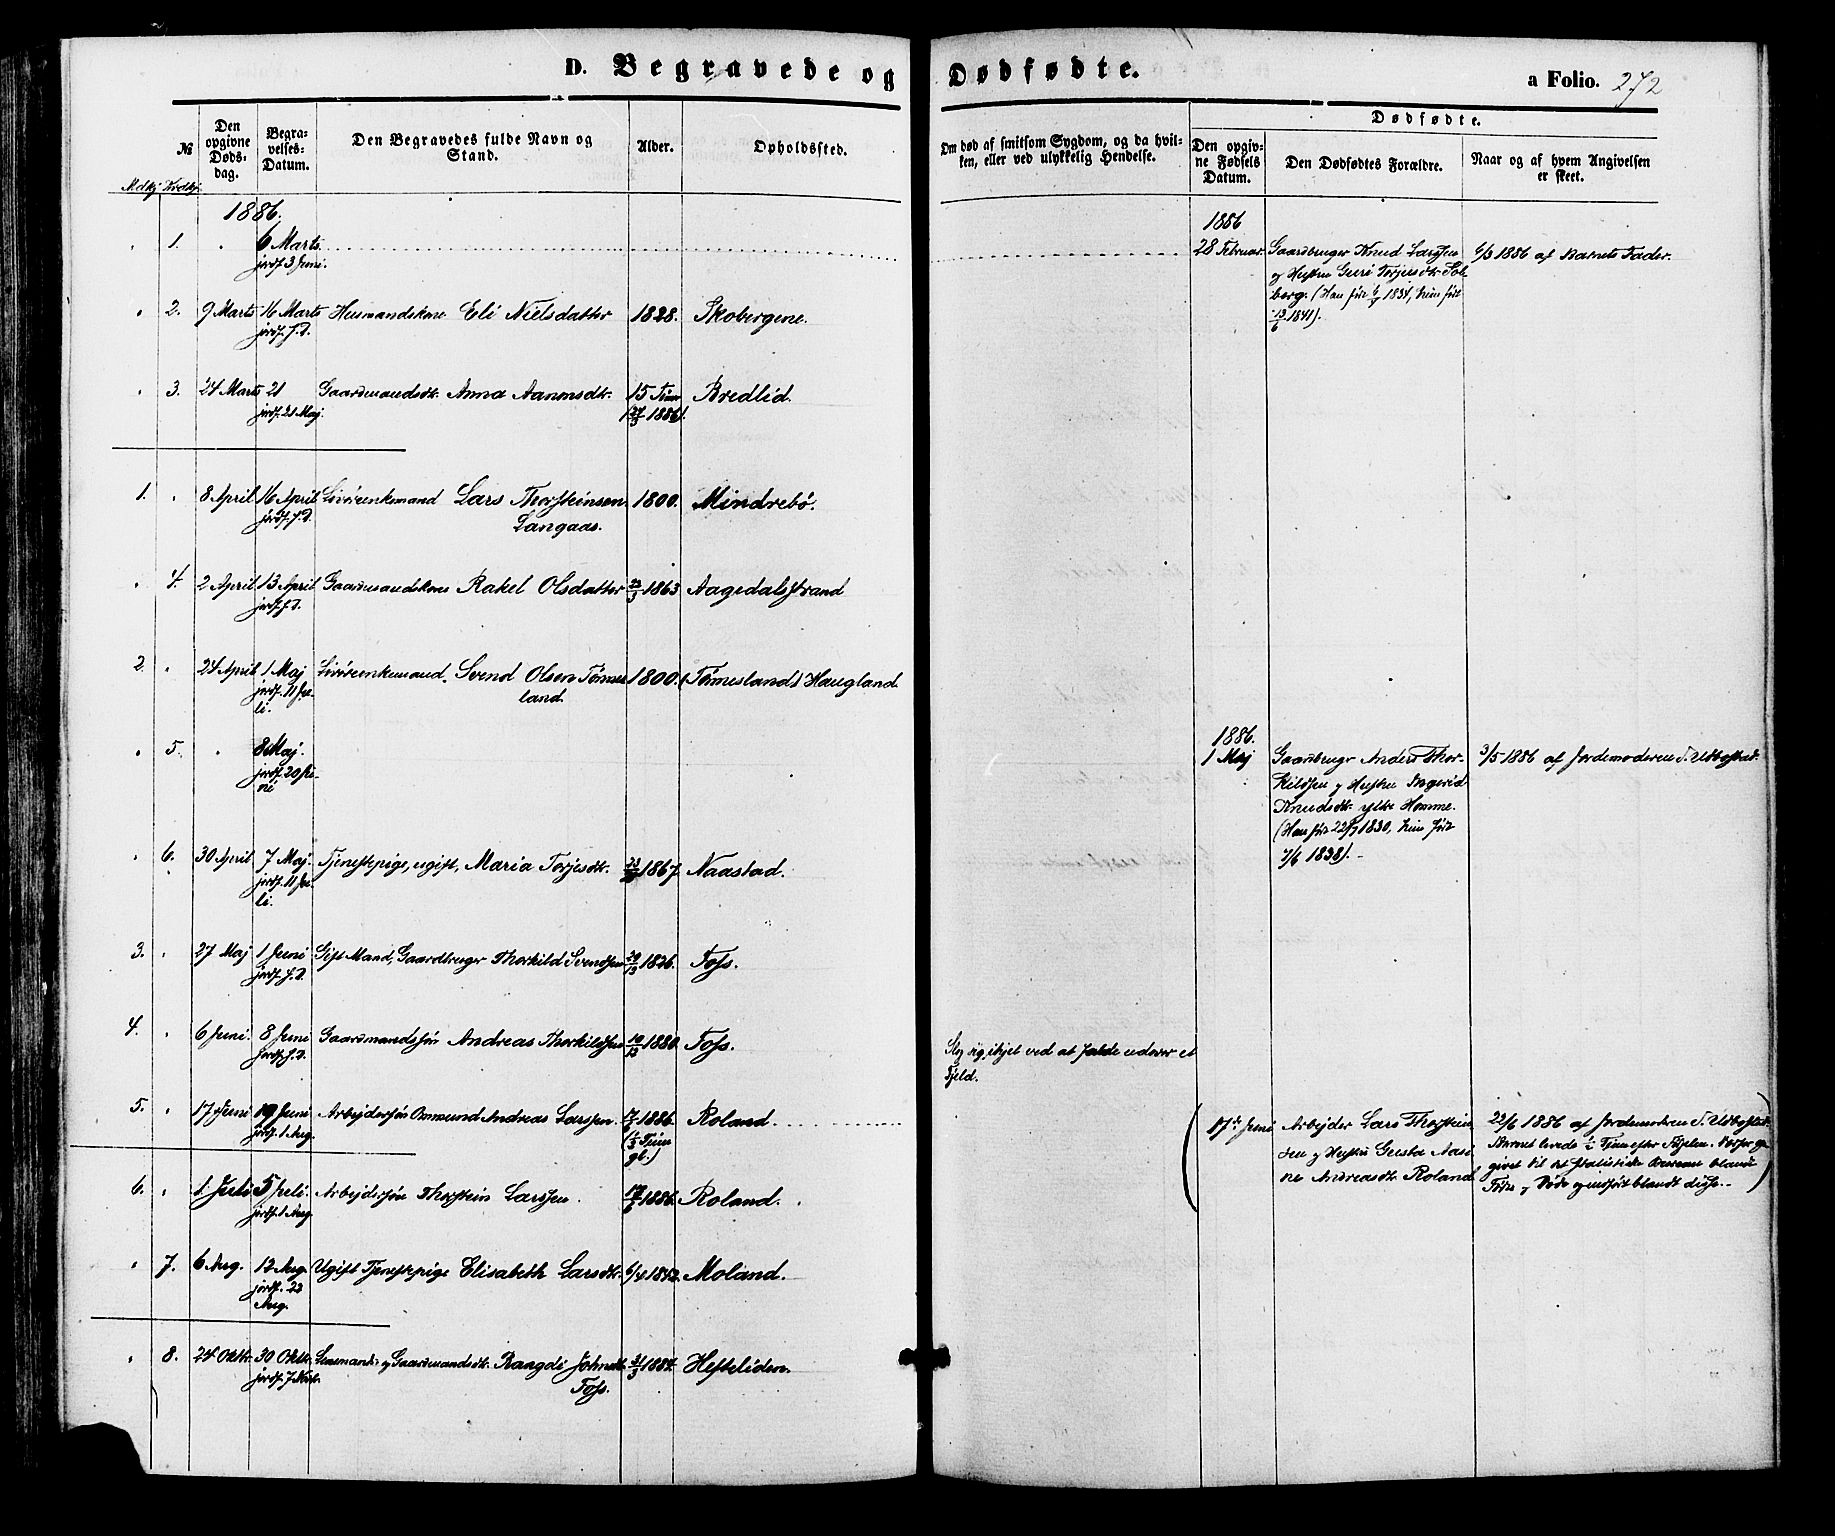 D. Begravede og Dødfødte.
a Folio. 272
№
Mdkj Kvdkj.
Den opgivne Døds-dag.
Begra-velses-Datum.
Den Begravedes fulde Navn og Stand.
Alder.
Opholdssted.
Om død af smitsom Sygdom, og da hvil-
ken, eller ved ulykkelig Hendelse.
Dødfødte.
Den opgiv-ne Fødsels Datum.
Den Dødfødtes Forældre.
Naar og af hvem Angivelsen er skeet.
1886.
1. 6 Marts
jordf. 3 Juni.
1886
28 Februar. Gaardbruger Knud Larssen 6/3 1886 af Barnets Fader.
og Hustru Guri Torjersdtr. Sol-
berg. (Han født 1834, hun født
13/6 1841).
2. 9 Marts 16 Marts Husmandskone Eli Nielsdatter 1828. Skobergene.
jordf. s. D.
3. 24 Marts 21 Gaardmandsdtr. Anna Aanonsdtr. 15 Timer Bredlid.
jordf. 21 Maj. 1886).
1. 8 April 16 April Livøreenkemand Lars Thorsteinsen 1800. Mindrebø.
jordf. s. D. Langaas.
4. 2 April 13 April Gaardmandskone Rakel Olsdatter 1863 Aagedalsstrand
jordf. s. D.
2. 24 April 1 Maj Livøreenkemand. Svend Olsen Tømmes- 1800. (Tømmesland) Haugland
jordf. 11 Ju- land.
li.
5. 8 Maj.
jordf. 20 Ju-
ni
1886.
1 Maj Gaardbrugr Anders Thor- 3/5 1886 af Jordemoderen S. Udbostad.
kildsen og Hustru Ingerid
Knudsdtr. ytre Homme.
(Han født 22/7 1830, hun født
7/6 1838).
6. 30 April 7 Maj. Tjenestepige, ugift, Maria Torjesdtr. 1867. Naastad.
jordf. 11 Ju-
li.
3. 27 Maj 1 Juni Gift Mand, Gaardbruger Thorkild Svendsen 1826. Foss.
jordf. s. D.
4. 6 Juni. 8 Juni Gaardmandssøn Andreas Thorkildsen 1880. Foss.
jordf. s. D.
Slog sig ihjel ved at falde udover et
Fjeld.
5. 17 Juni 19 Juni Arbejdersøn Ommund Andreas Larssen. 17/6 1886. Roland.
jordf. 1 Aug. (1/2 Time
gl.)
17de Juni Arbejder Lars Thorstein- 22/6 1886 af Jordemoderen S. Udbostad.
sen og Hustru Gusta Aase- Barnet levede 1/2 Time efter Fødselen. Derfor op-
ne Andreasdtr. Roland givet til det statistiske Bureau blandt
Fødte og Døde og indført blandt disse.
6. 1 Juli 5 Juli Arbejdersøn Thorstein Larssen. 17/6 1886. Roland.
jordf. 1 Aug.
7. 6 Aug. 12 Aug. Ugift Tjenestepige Elisabeth Larsdtr. 6/4 1842. Moland.
jordf. 22
Aug.
8. 24 Oktbr. 30 Oktbr. Lensmands- og Gaardmandsdtr. Rangdi Johnsdtr. 1884. Hesteliden.
jordf. 7 Novb. Foss.